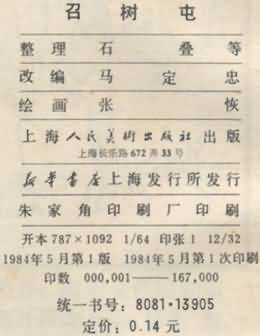 召树屯
整理 石叠等
改编 马定忠
绘画 张恢
上海人民美術出版社出版
上海长乐路672弄33号
新华书店上海发行所发行
朱家角印刷厂印刷
开本787×1092 1/64 印张1 12/32
1984年5月第1版 1984年5月第1次印刷
印数 000,001——167,000
统一书号：8081·13905
定价：0.14元